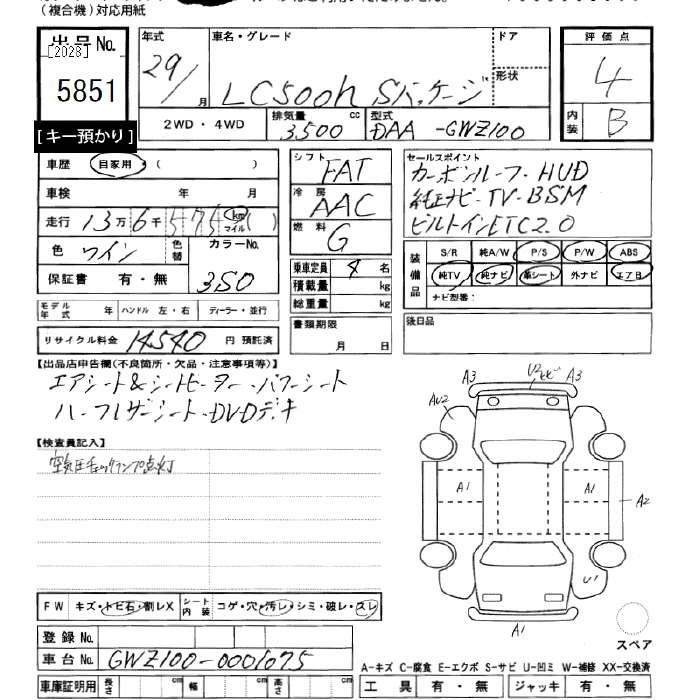 (複合機)対応用紙
出品No.
[2028]
5851
[キー預かり]
年式
29/
月
車名・グレード
LC500h Sパッケージ
ドア
形状
評価点
4
内装
B
2WD・4WD
排気量
3,500
cc
型式
DAA -GWZ100
車歴
自家用・( )
車検
年 月
走行
13万 6千 575 km マイル ( )
色
ワイン
色替
カラーNo.
3S0
保証書 有・無
モデル年式 年
ハンドル 左・右
ディーラー・並行
リサイクル料金 14540 円 預託済
シフト
FAT
冷房
AAC
燃料
G
乗車定員 4 名
積載量 kg
総重量 kg
書類期限
月 日
セールスポイント
カーボンルーフ・HUD
純正ナビ・TV・BSM
ビルトインETC2.0
装備品
S/R 純A/W P/S P/W ABS
純TV 純ナビ 革シート 外ナビ エアB
ナビ型番:
後日品
【出品店申告欄(不良箇所・欠品・注意事項等)】
エアシート&シートヒーター・パワーシート
ハーフレザーシート・DVDデキ
【検査員記入】
空気圧チェックランプ点灯
A3
U2
A3
AU2
A1
A1
A2
U1
A1
スペア
FW キズ・トビ石・割レX
シート内装 コゲ・穴・汚レ・シミ・破レ・スレ
登録 No.
車台 No. GWZ100-0001075
車庫証明用 長さ cm 幅 cm 高さ cm
A-キズ C-腐食 E-エクボ S-サビ U-凹ミ W-補修 XX-交換済
工具 有・無 ジャッキ 有・無